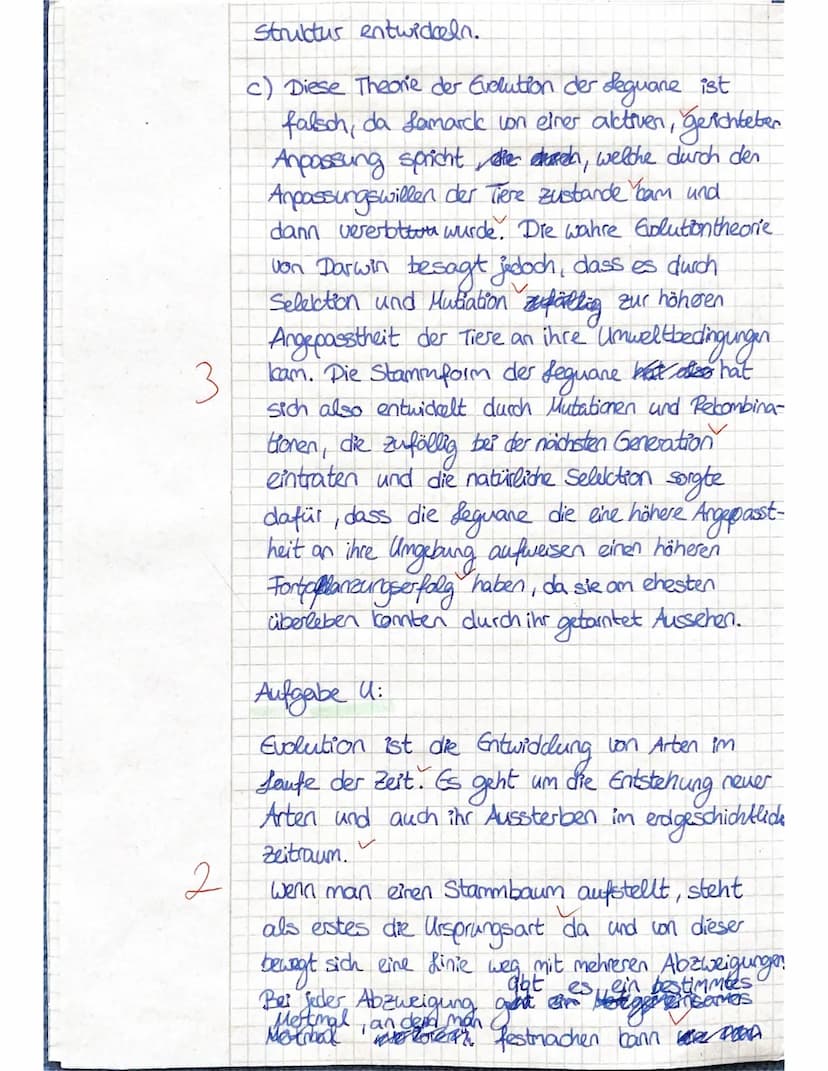 Struktur entwickeln.
c) Diese Theorie der Evolution der Leguane ist
falsch, da Lamarck von einer aktiven, gerichteten
Anpassung spricht, welche durch den
Anpassungswillen der Tiere zustande kam und
dann vererbt wurde. Die wahre Evolutiontheorie
von Darwin besagt jedoch, dass es durch
Selektion und Mutation zufällig zur höheren
Angepasstheit der Tiere an ihre Umweltbedingungen
kam. Die Stammform der Leguane hat
3
sich also entwickelt durch Mutationen und Rekombina-
tionen, die zufällig bei der nächsten Generation
eintraten und die natürliche Selektion sorgte
dafür, dass die Leguane die eine höhere Angepasst-
heit an ihre Umgebung aufweisen einen höheren
Fortpflanzungserfolg haben, da sie am ehesten
überleben konnten durch ihr getarntet Aussehen.
Aufgabe 4:
Evolution ist die Entwicklung von Arten im
Laufe der Zeit. Es geht um die Entstehung neuer
Arten und auch ihr Aussterben im erdgeschichtlich
Zeitraum.
2
Wenn man einen Stammbaum aufstellt, steht
als erstes die Ursprungsart da und von dieser
bewegt sich eine Linie weg mit mehreren Abzweigungen
Bei jeder Abzweigung gibt es ein bestimmtes
Merkmal, an dem man
festmachen kann